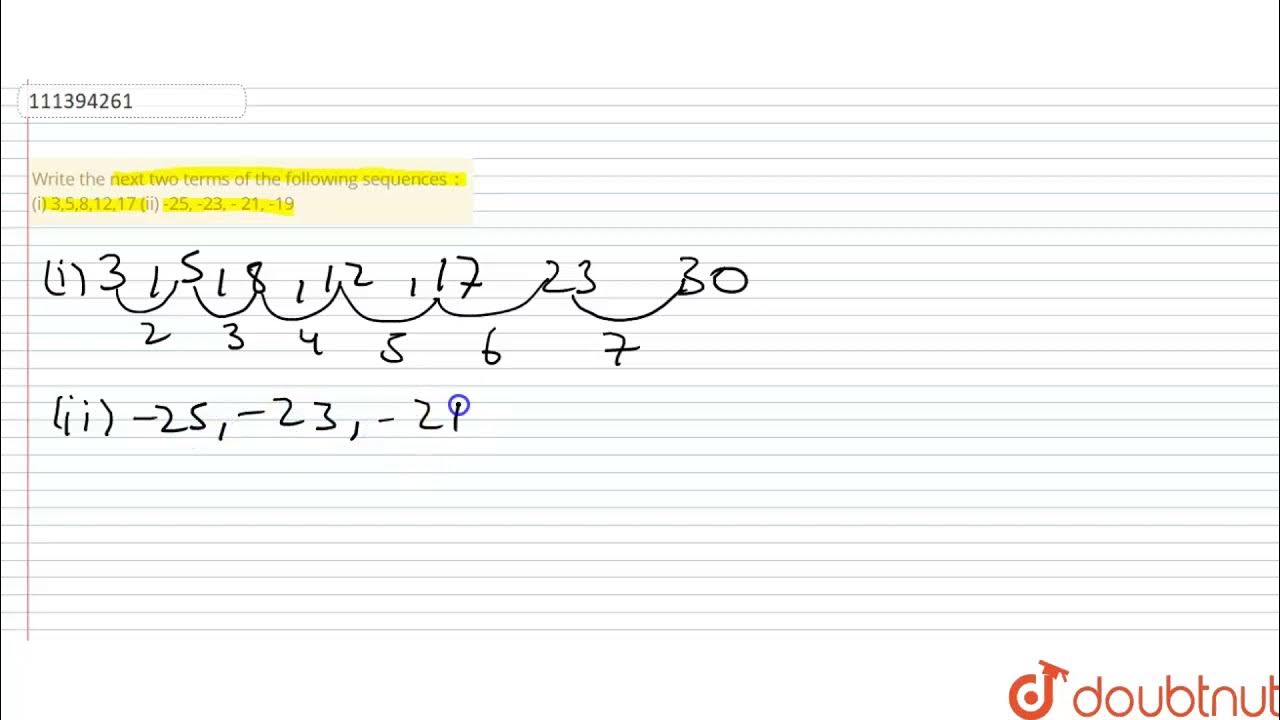 111394261
Write the next two terms of the following sequences :
(i) 3,5,8,12,17 (ii) -25, -23, - 21, -19
(i) 3 , 5 , 8 , 12 , 17 23 30
2 3 4 5 6 7
(ii) -25, -23, - 21
doubtnut